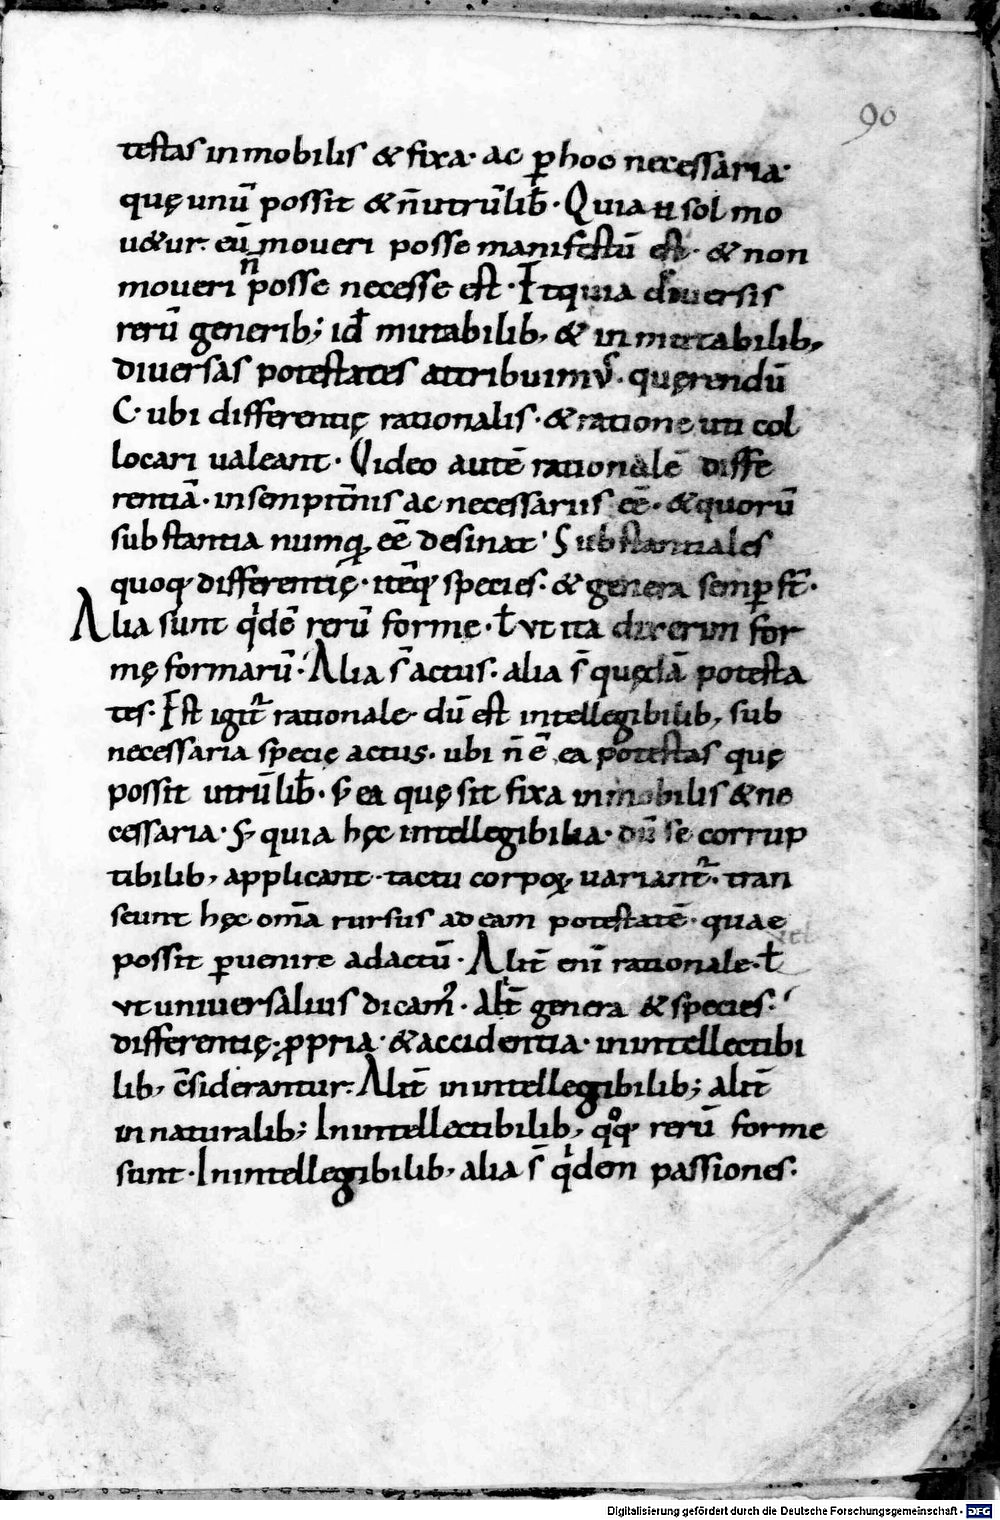 90
testas inmobilis & fixa· ac ꝑ hoc necessaria·
quę unū possit & n̄ utrūlib&#x0335;· Quia u sol mo
u&ur· eū moueri posse manifestū est· & non
moueri n̄ posse necesse est· Itq́; quia diuersis
rerū generib; id̄ mutabilib, & inmutabilib,
diuersas potestates attribuimꝰ· quęrendū
ē· ubi differentię rationalis· & ratione uti col
locari ualeant· Video autē rationalē diffe
rentiā· insempit̄nis ac necessariis eē· & quorū
substantia numꝗ eē desinat· Substantiales
quoq; differentię· itēq; species· & genera semꝑ st̄·
Alia sunt q̇dē rerū formę· ł ut ita dixerim for
mę formarū· Alia s̄ actus· alia s̄ quędā potesta
tes· Est igit̄ rationale· dū est intellegibilib, sub
necessaria specię actus· ubi n̄ ē ea potestas quę
possit utrūlib&#x0335;· s; ea quę sit fixa inmobilis & ne
cessaria· S; quia hęc intellegibilia· dū se corrup
tibilib, applicant· tactu corpoꝝ uariant̄· tran
seunt hęc om̄a rursus ad eam potestatē· quae
possit ꝑuenire ad actū· Alit̄ enī rationale· ł
uel
ut uniuersalius dicam̄· alit̄ genera & species·
differentię· ꝓpria· & accidentia· in intellectibi
lib, c̄siderantur· Alit̄ in intellegibilib; alit̄
in naturalib; In intellectibilib, qͦq; rerū forme
sunt· In intellegibilib, alia s̄ q̇dem passiones·
Digitalisierung gefördert durch die Deutsche Forschungsgemeinschaft - DFG